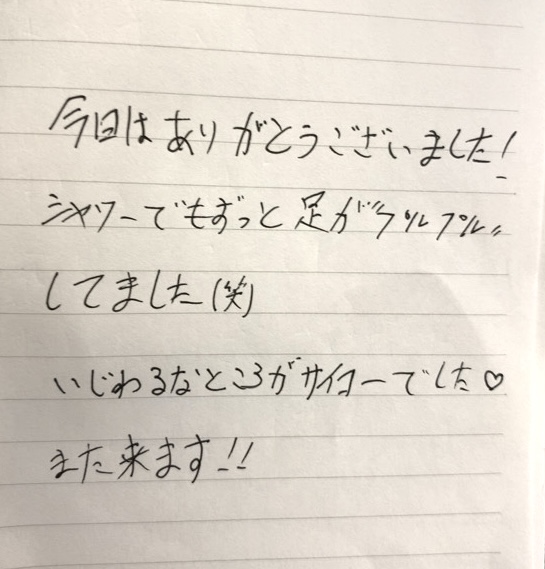 今日はありがとうございました!
シャワーでもずっと足が〝プルプル〟
してました(笑)
いじわるなところがサイコーでした♡
また来ます!!